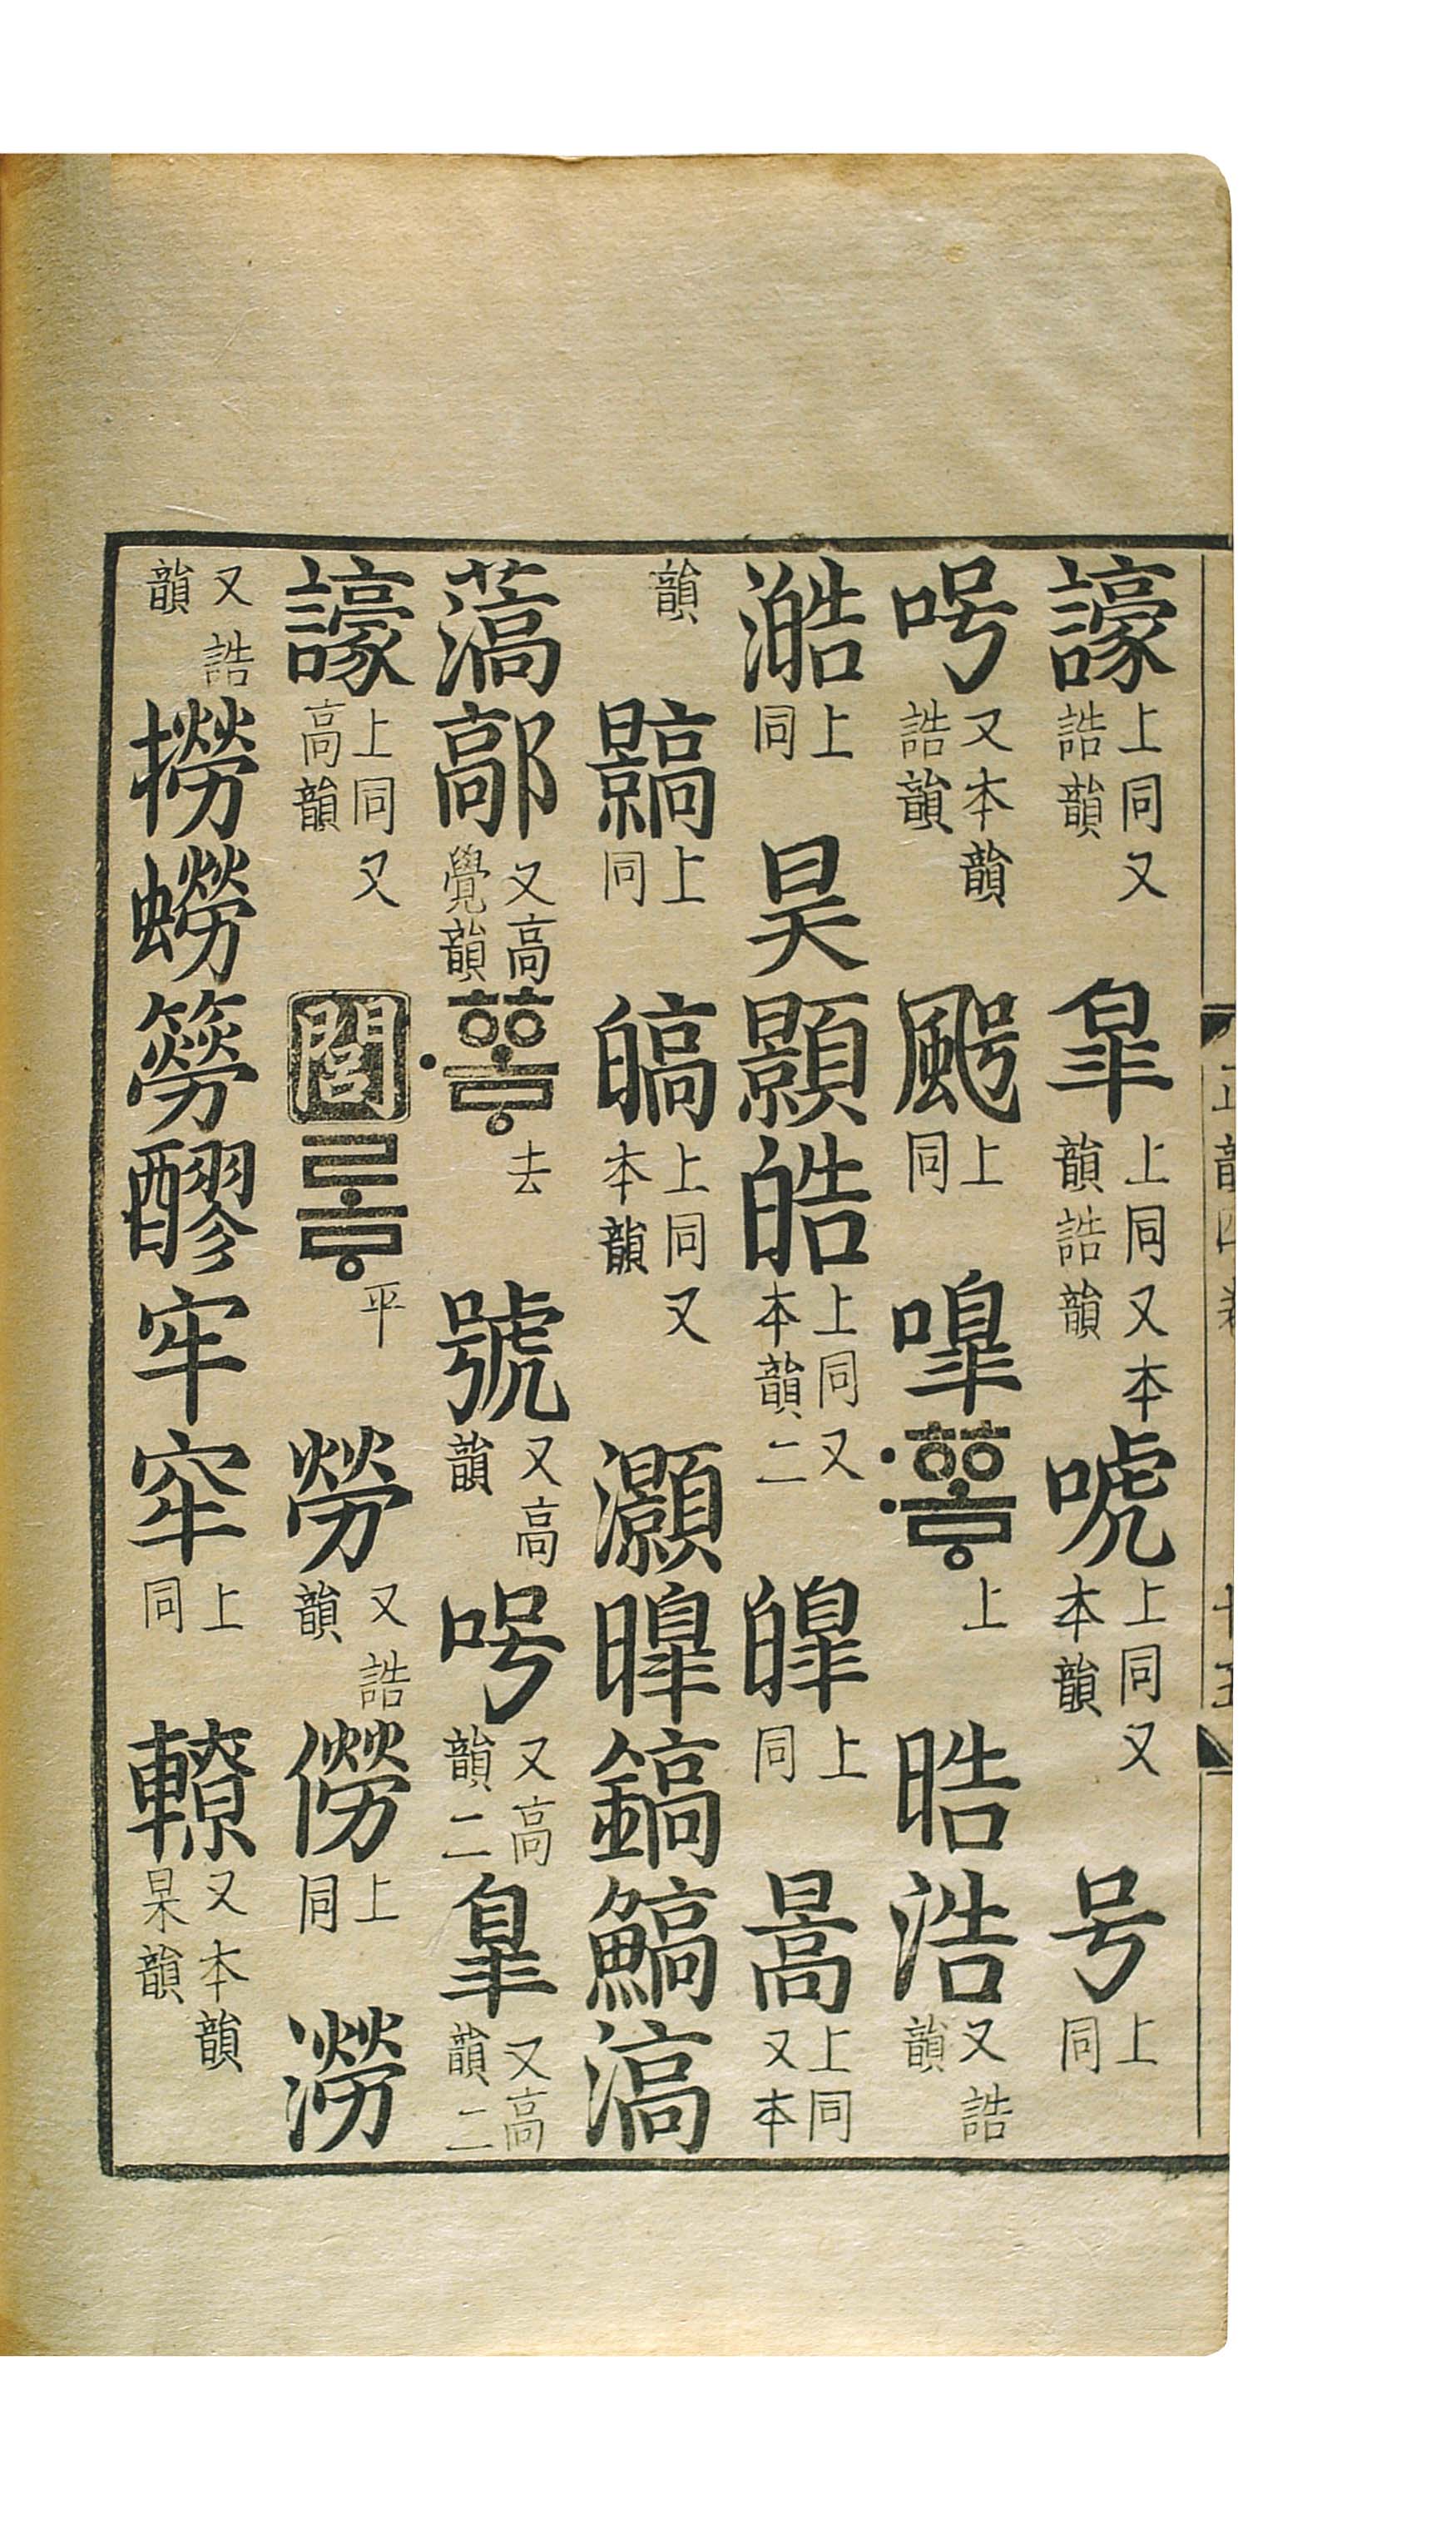 譹上同又誥韻皐上同又本韻誥韻唬上同又本韻号上同
呺又本韻誥韻上同嘷〯ᅘᅩᇢ上晧浩又誥韻
澔上同昊顥皓上同又本韻二皞上同暠上同又本
韻上同皜上同又本韻灝暤鎬鰝滈
薃鄗又高覺韻〮ᅘᅩᇢ去號又高韻呺又高韻二皐又高韻二
譹上同又高韻閭로ᇢ平勞又誥韻僗上同澇
又誥韻撈蟧簩醪牢窂上同轑又本韻杲韻